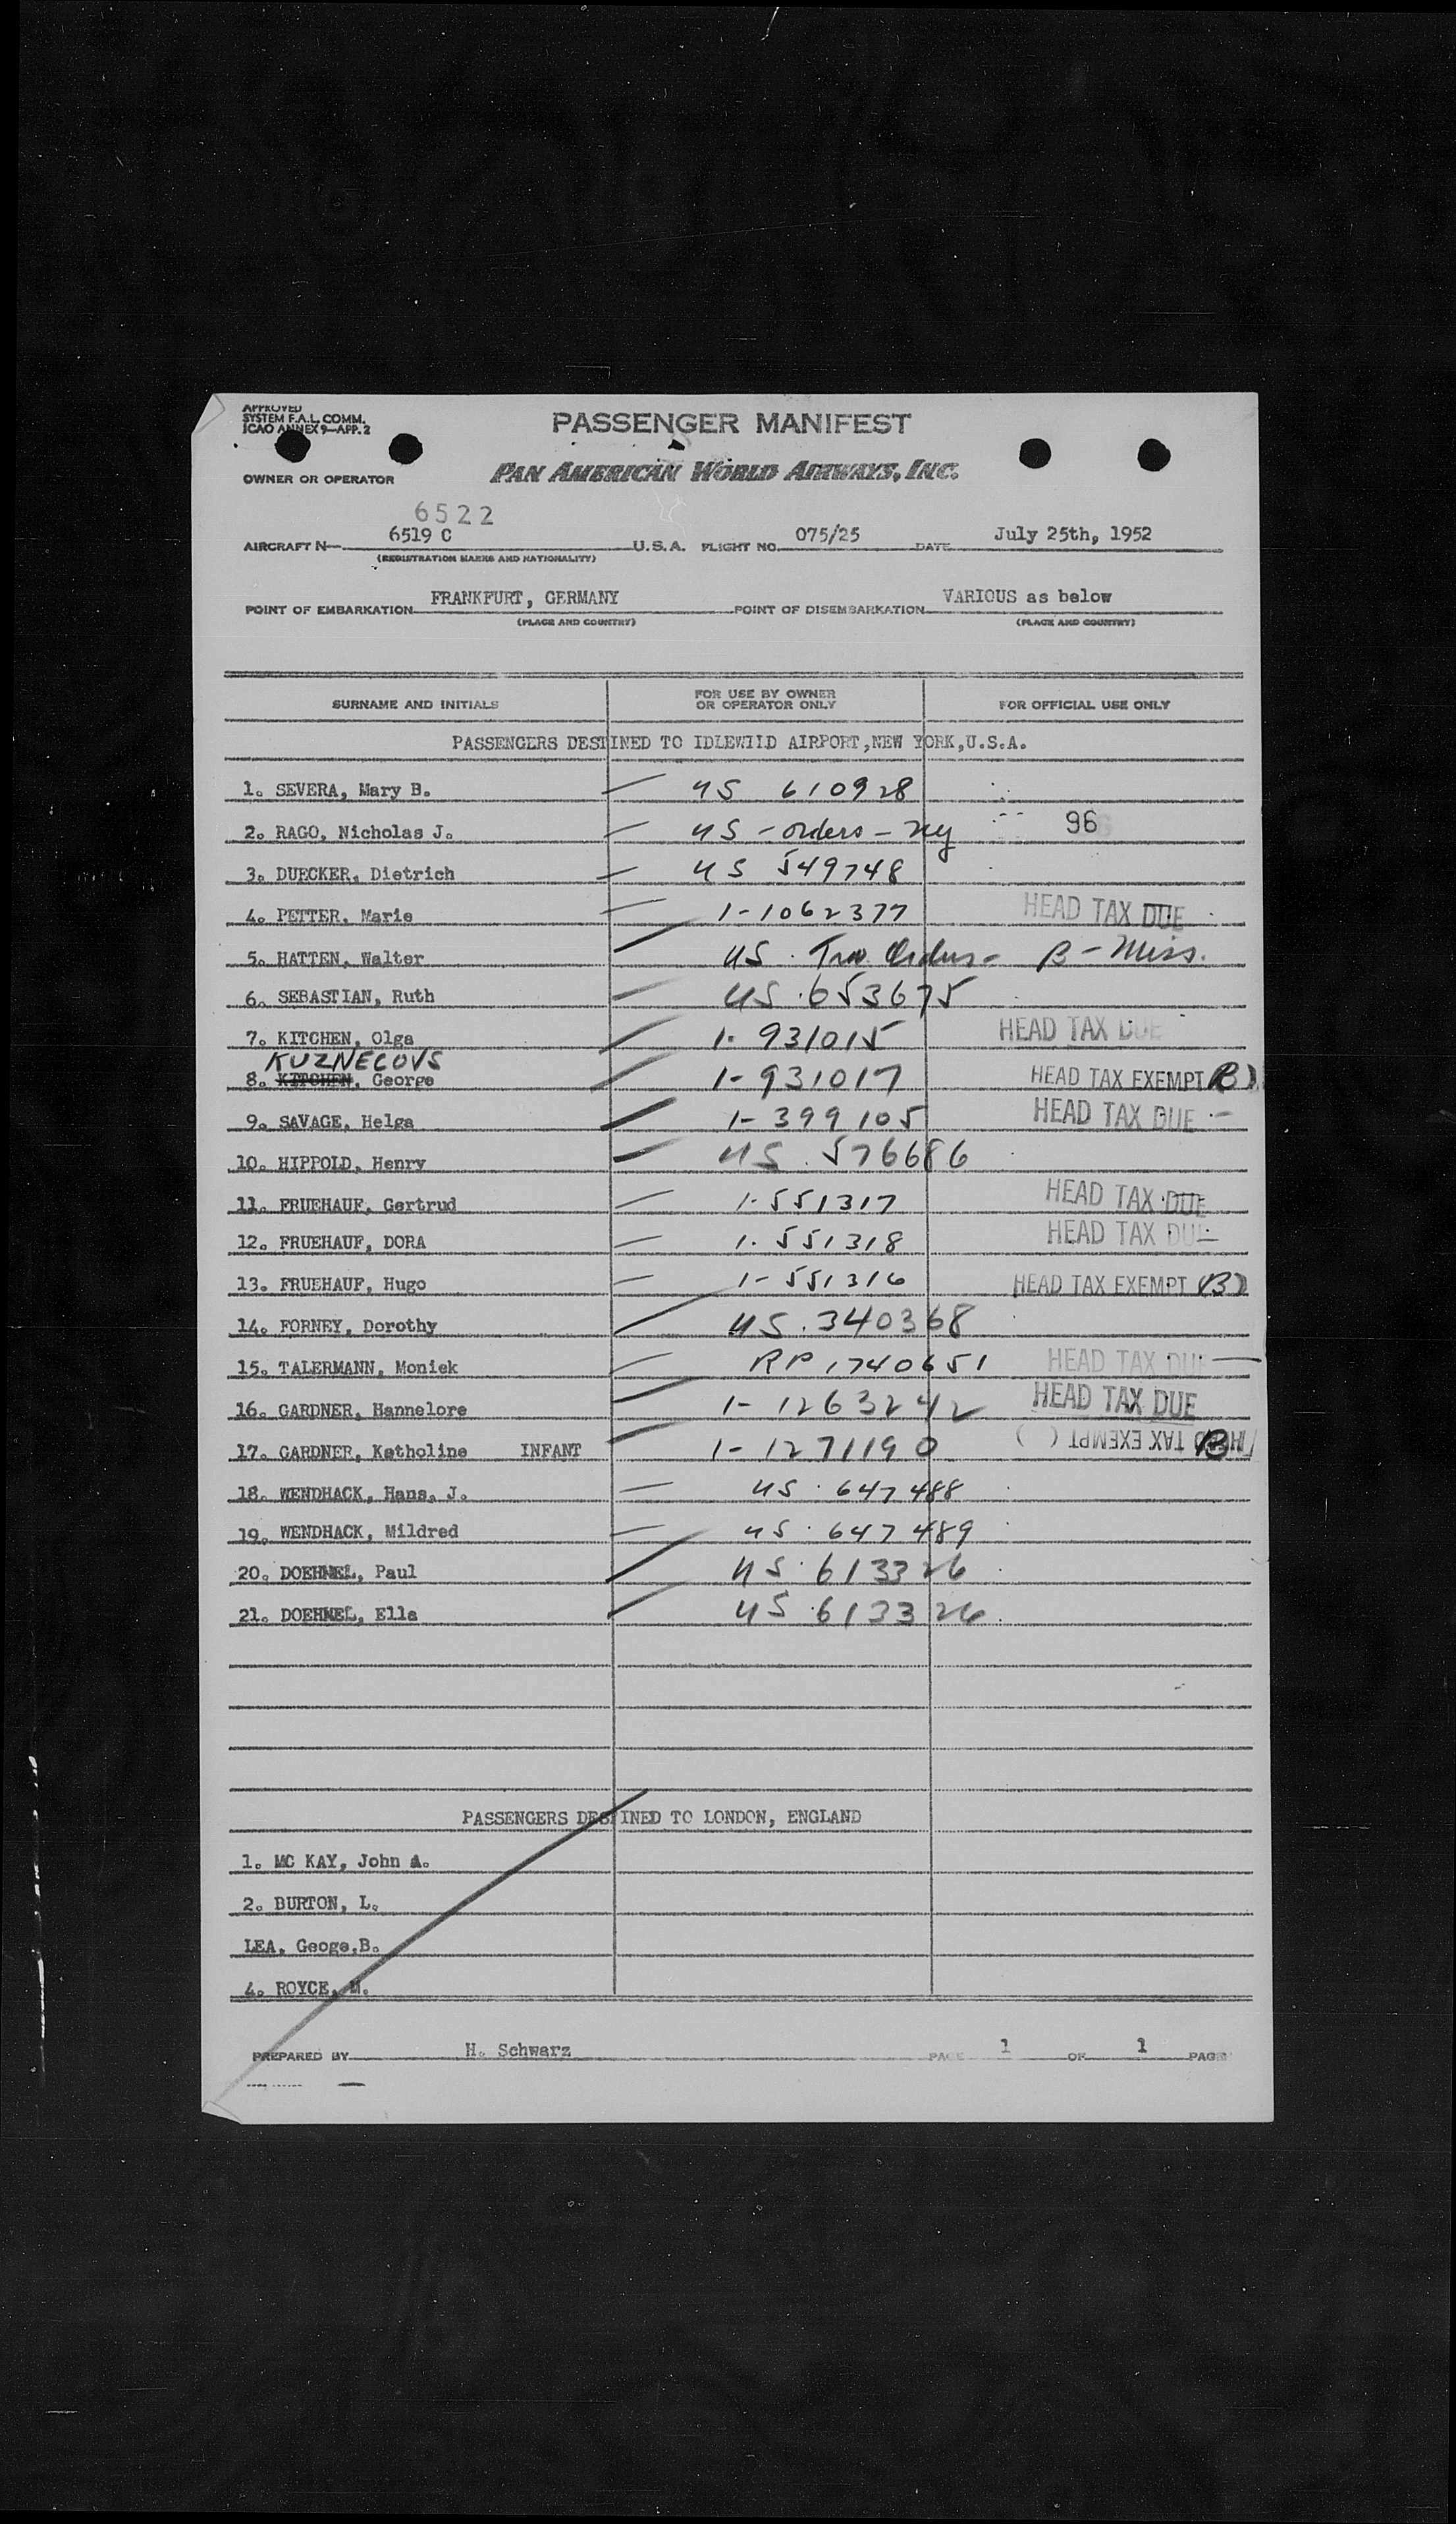 APPROVED
SYSTEM F.A.L. COMM.
ICAO ANNEX 9—APP. 2
PASSENGER MANIFEST
OWNER OR OPERATOR PAN AMERICAN WORLD AIRWAYS, INC.
6522
AIRCRAFT N— 6519 C U.S.A. FLIGHT NO. 075/25 DATE July 25th, 1952
(REGISTRATION MARKS AND NATIONALITY)
POINT OF EMBARKATION FRANKFURT, GERMANY POINT OF DISEMBARKATION VARIOUS as below
(PLACE AND COUNTRY) (PLACE AND COUNTRY)
SURNAME AND INITIALS FOR USE BY OWNER OR OPERATOR ONLY FOR OFFICIAL USE ONLY
PASSENGERS DESTINED TO IDLEWILD AIRPORT,NEW YORK,U.S.A.
1. SEVERA, Mary B. — US 610928
2. RAGO, Nicholas J. — US - orders - NY 96
3. DUECKER, Dietrich — US 549748
4. PETTER, Marie — 1-1062377 HEAD TAX DUE
5. HATTEN, Walter — US. Orders - B - Miss.
6. SEBASTIAN, Ruth — US.653675
7. KITCHEN, Olga — 1-931015 HEAD TAX DUE
KUZNECOVS
8. KITCHEN, George — 1-931017 HEAD TAX EXEMPT (B)
9. SAVAGE, Helga — 1-399105 HEAD TAX DUE -
10. HIPPOLD, Henry — US. 576686
11. FRUEHAUF, Gertrud — 1-551317 HEAD TAX DUE
12. FRUEHAUF, DORA — 1.551318 HEAD TAX DUE
13. FRUEHAUF, Hugo — 1-551316 HEAD TAX EXEMPT (B)
14. FORNEY, Dorothy — US.340368
15. TALERMANN, Moniek — RP 1740651 HEAD TAX DUE —
16. GARDNER, Hannelore — 1-1263242 HEAD TAX DUE
17. GARDNER, Katholine INFANT — 1-1271190 HEAD TAX EXEMPT ( ) B
18. WENDHACK, Hans. J. — US.647488
19. WENDHACK, Mildred — US.647489
20. DOEHNEL, Paul — US.613326
21. DOEHNEL, Ella — US.613326
PASSENGERS DESTINED TO LONDON, ENGLAND
1. MC KAY, John A.
2. BURTON, L.
LEA, Geoge.B.
4. ROYCE, M.
PREPARED BY H. Schwarz PAGE 1 OF 1 PAGE